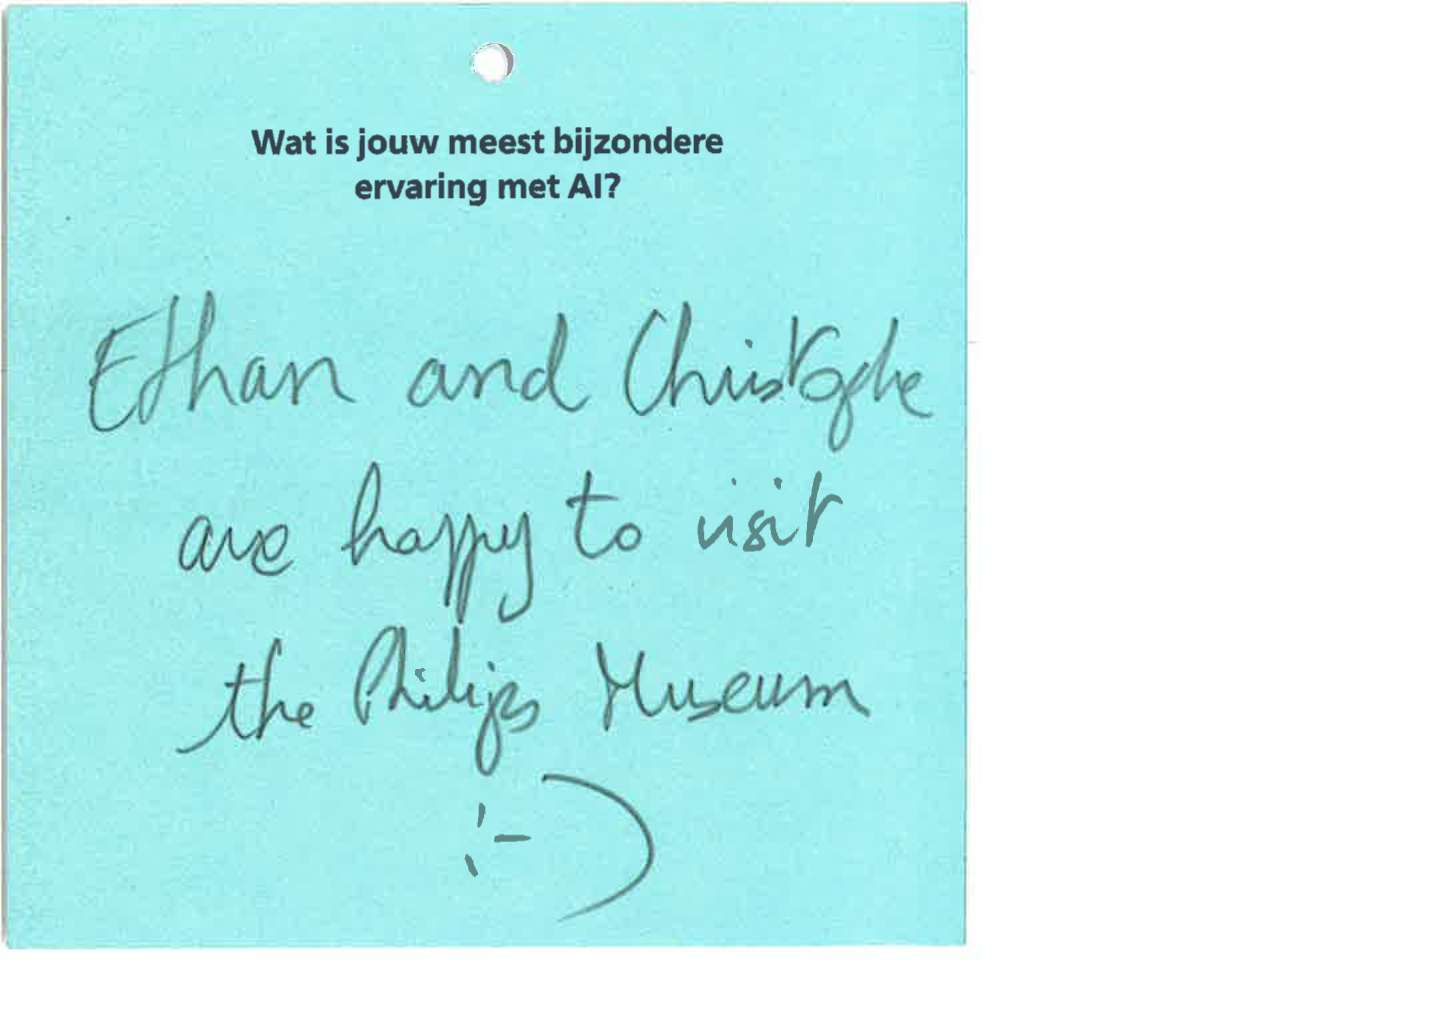 Wat is jouw meest bijzondere
ervaring met AI?
Ethan and Christophe
are happy to visit
the Philips Museum
:-)